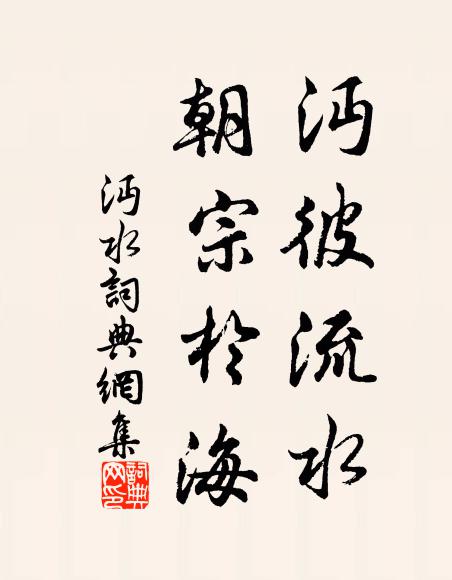 沔彼流水
朝宗於海
沔水詞典網集
詞典网印